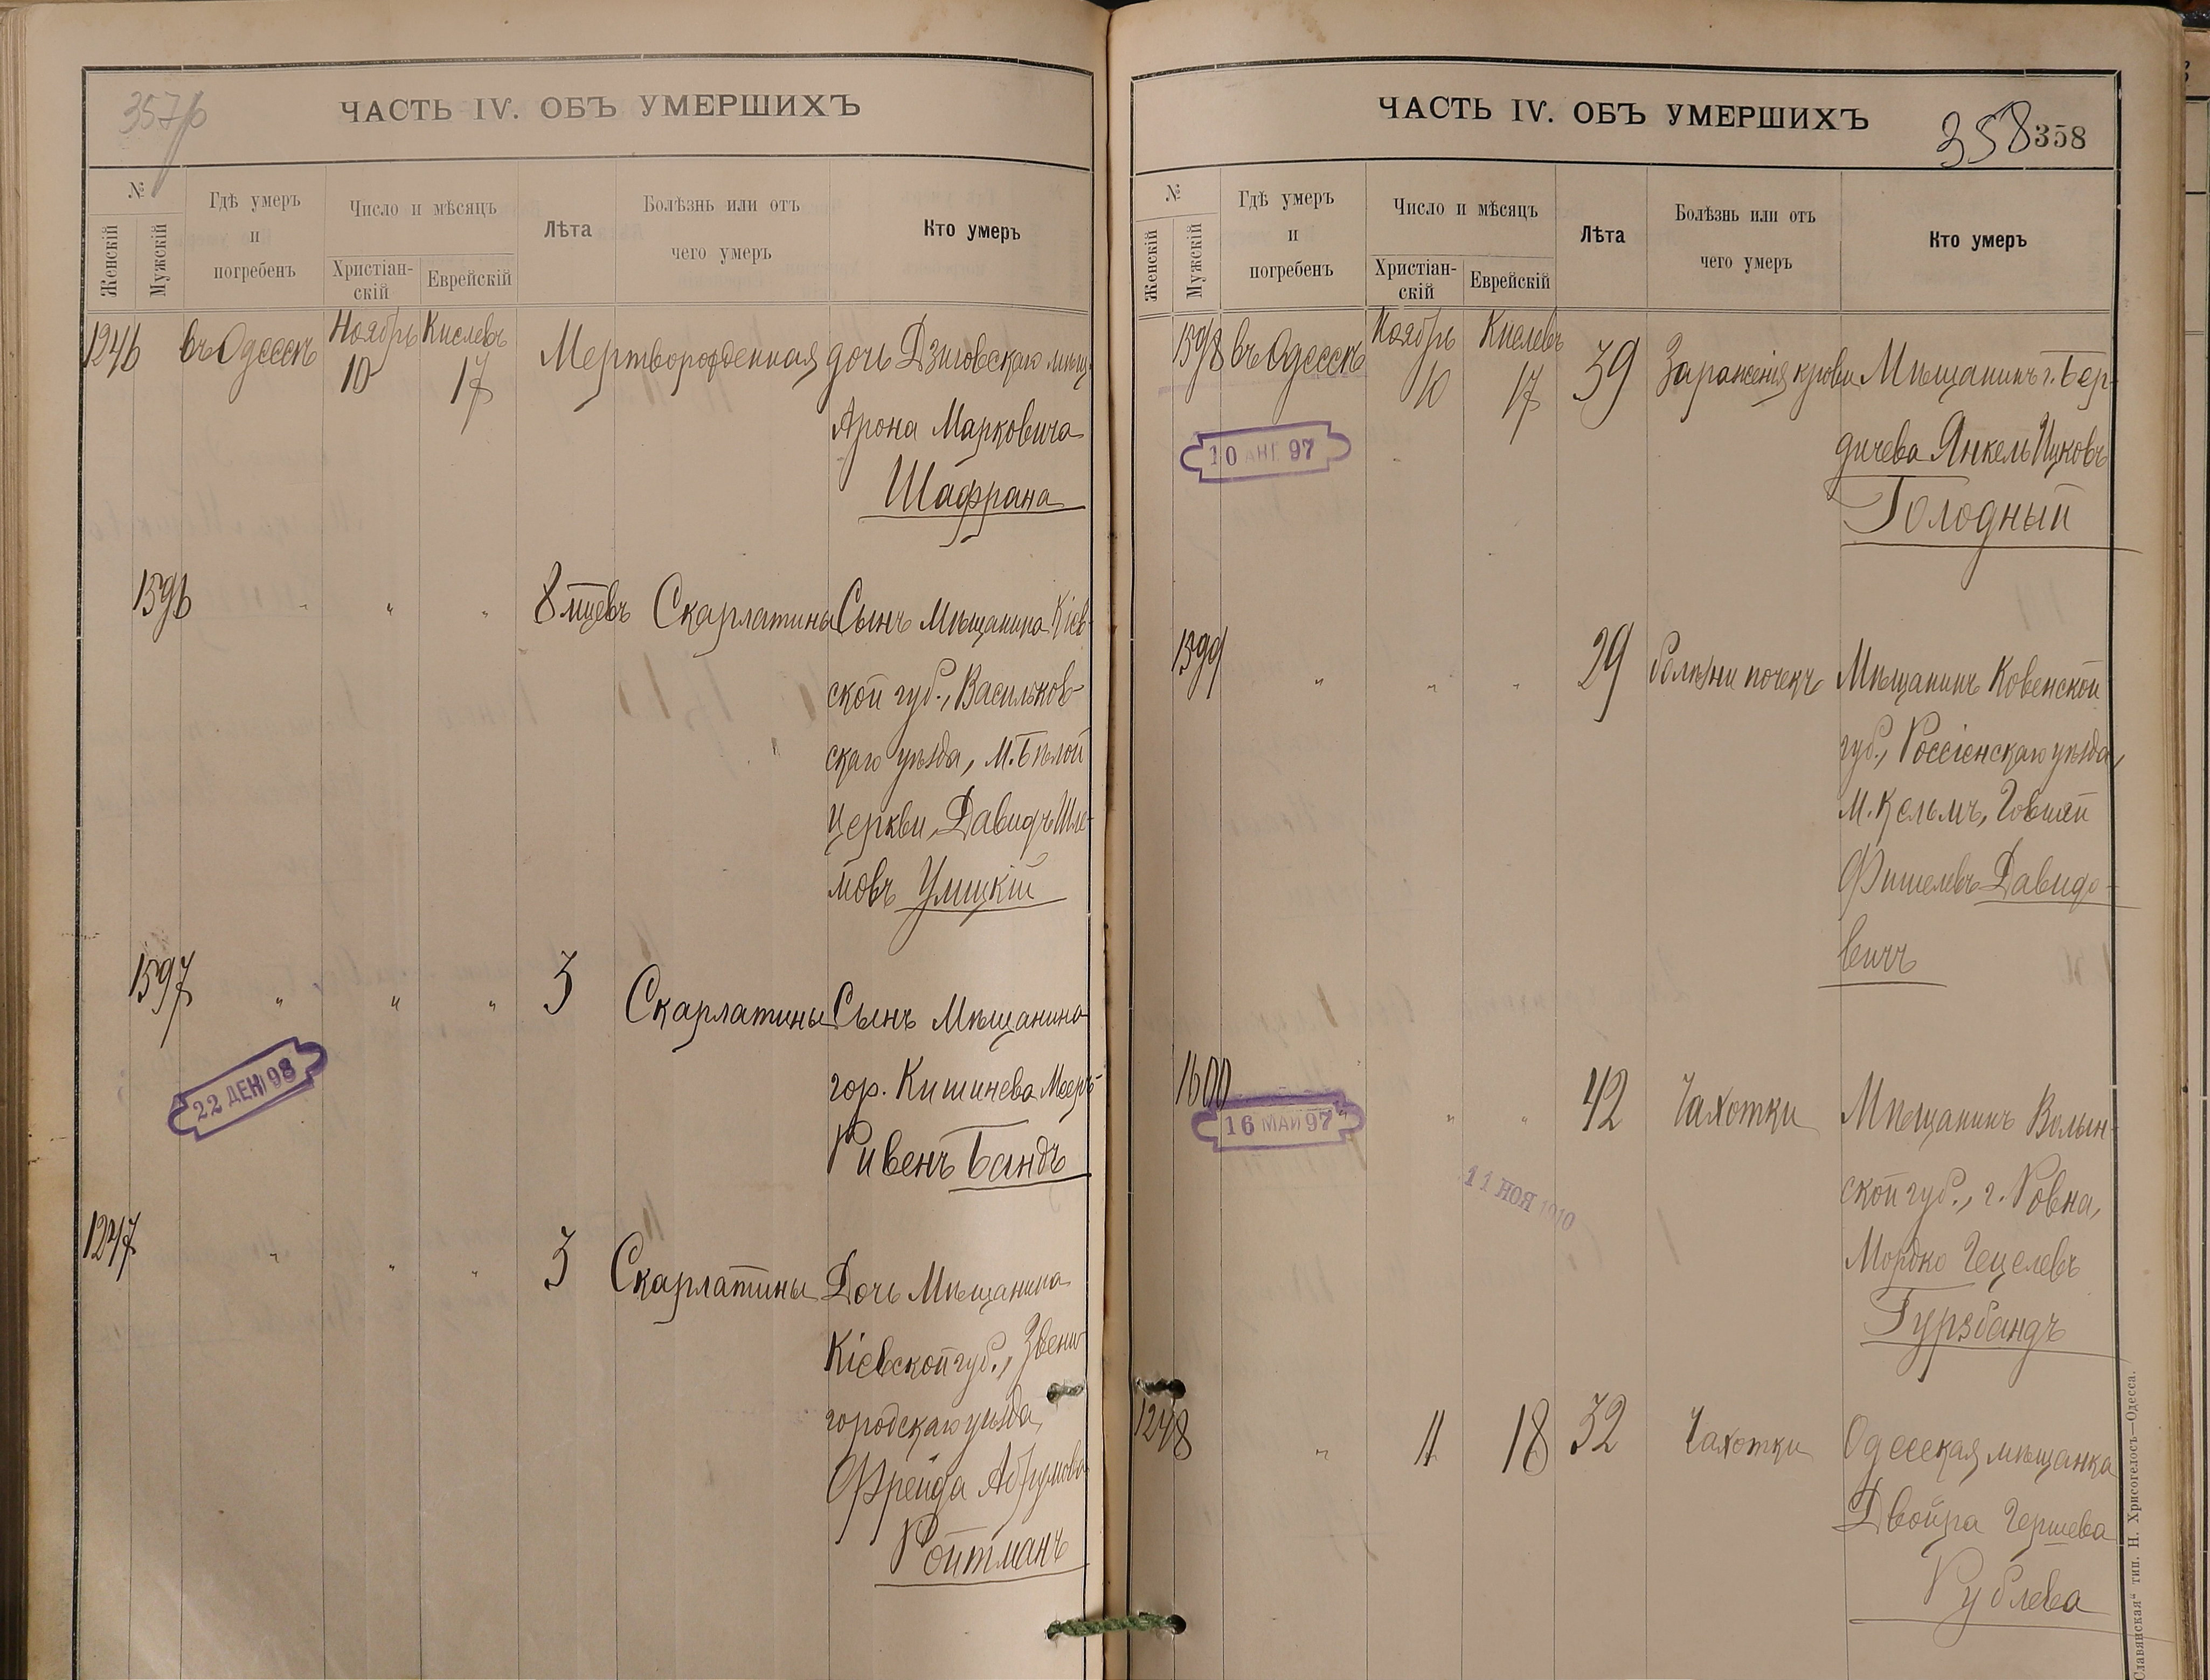 357/б
ЧАСТЬ IV. ОБЪ УМЕРШИХЪ
№
Женскій
Мужскій
Гдѣ умеръ
и
погребенъ
Число и мѣсяцъ
Христіан-
скій
Еврейскій
Лѣта
Болѣзнь или отъ
чего умеръ
Кто умеръ
1246 въ Одессѣ Ноябрь 10 Кислевъ 17 Мертворожденная дочь Дзиговскаго мѣщ.
Арона Марковича
Шафрана
1596 " " " 8 мцевъ Скарлатины Сынъ Мѣщанина Кіев-
ской губ., Васильков-
скаго уѣзда, М. Бѣлой
Церкви, Давидъ Шле-
мовъ Улицкій
1597 " " " 3 Скарлатины Сынъ Мѣщанина
гор. Кишинева Мееръ-
Ривенъ Бандъ
22 ДЕК 98
1247 " " " 3 Скарлатины Дочь Мѣщанина
Кіевской губ., Звени-
городскаго уѣзда,
Фрейда Абрумова
Ройтманъ
ЧАСТЬ IV. ОБЪ УМЕРШИХЪ
358 358
№
Женскій
Мужскій
Гдѣ умеръ
и
погребенъ
Число и мѣсяцъ
Христіан-
скій
Еврейскій
Лѣта
Болѣзнь или отъ
чего умеръ
Кто умеръ
1598 въ Одессѣ Ноябрь 10 Кислевъ 17 39 Зараженія крови Мѣщанинъ г. Бер-
дичева Янкель Ицковъ
Голодный
10 АНГ 97
1599 " " " 29 болѣзни почекъ Мѣщанинъ Ковенской
губ., Россіенскаго уѣзда,
М. Кельмъ,
Фишелевъ Давидо-
вичъ
1600 " " " 42 Чахотки Мѣщанинъ Волын-
ской губ., г. Ровна,
Мордко Гецелевъ
Гурзбандъ
16 МАЙ 97
11 НОЯ 1910
1248 " 11 18 32 Чахотки Одесская мѣщанка
Двойра Гершева
Рублева
Славянская" тип. Н. Хрисогелосъ—Одесса.